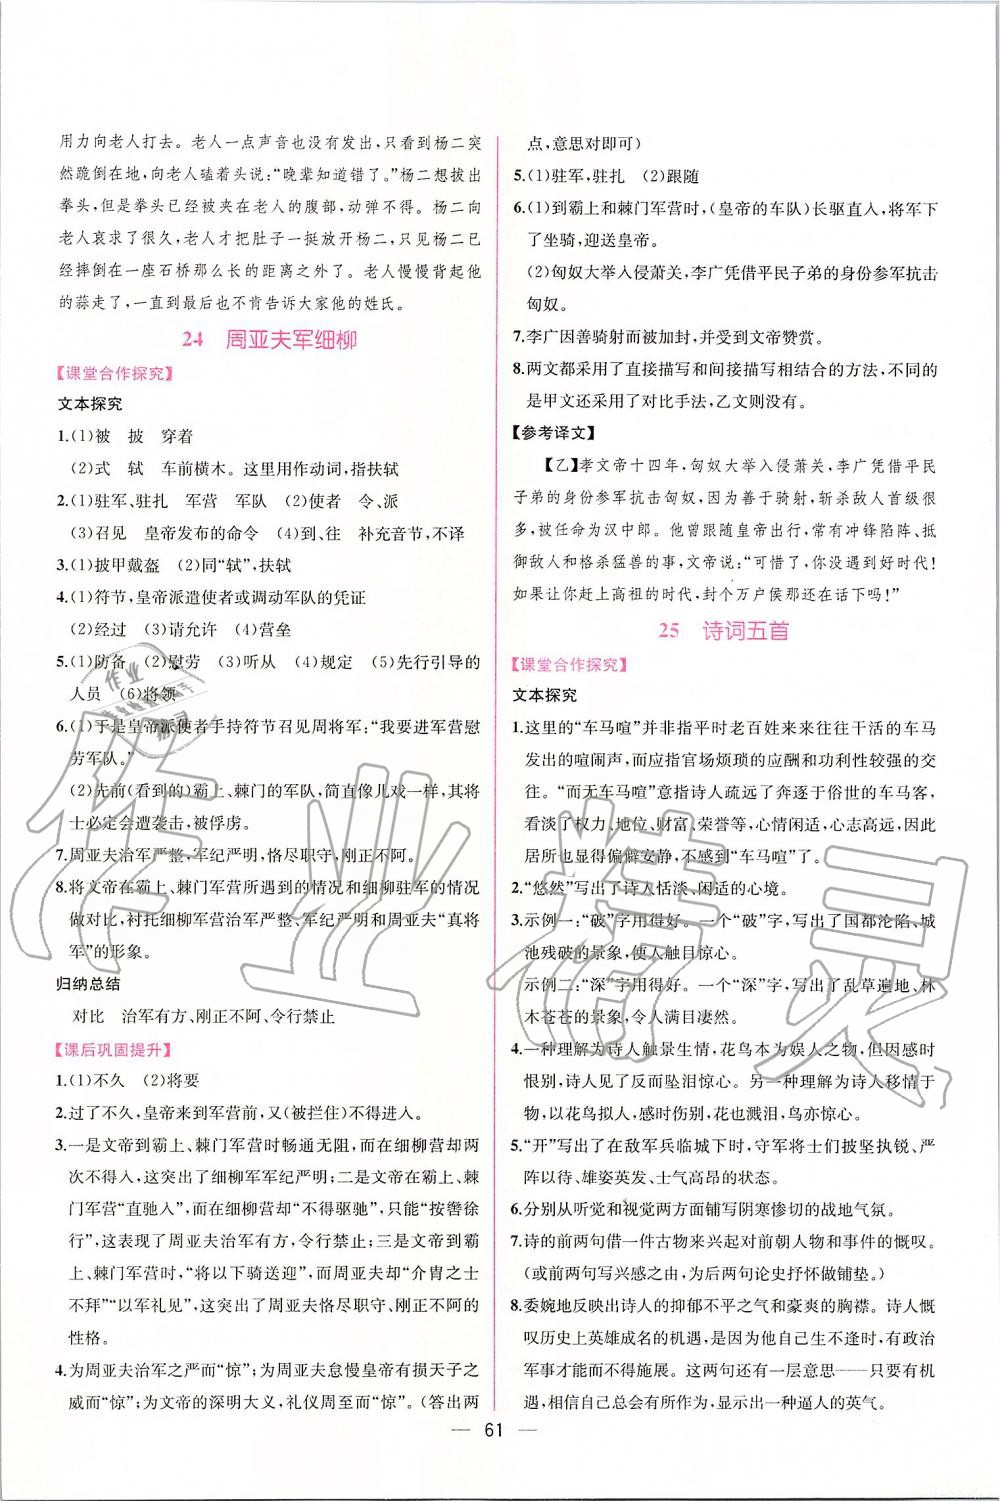 用力向老人打去。老人一点声音也没有发出,只看到杨二突
然跪倒在地,向老人磕着头说:“晚辈知道错了。”杨二想拔出
拳头,但是拳头已经被夹在老人的腹部,动弹不得。杨二向
老人哀求了很久,老人才把肚子一挺放开杨二,只见杨二已
经摔倒在一座石桥那么长的距离之外了。老人慢慢背起他
的蒜走了,一直到最后也不肯告诉大家他的姓氏。
24 周亚夫军细柳
【课堂合作探究】
文本探究
1.(1)被 披 穿着
(2)式 轼 车前横木。这里用作动词,指扶轼
2.(1)驻军、驻扎 军营 军队 (2)使者 令、派
(3)召见 皇帝发布的命令 (4)到、往 补充音节,不译
3.(1)披甲戴盔 (2)同“轼”,扶轼
4.(1)符节,皇帝派遣使者或调动军队的凭证
(2)经过 (3)请允许 (4)营垒
5.(1)防备 (2)慰劳 (3)听从 (4)规定 (5)先行引导的
人员 (6)将领
6.(1)于是皇帝派使者手持符节召见周将军:“我要进军营慰
劳军队。”
(2)先前(看到的)霸上、棘门的军队,简直像儿戏一样,其将
士必定会遭袭击,被俘虏。
7.周亚夫治军严整、军纪严明,恪尽职守,刚正不阿。
8.将文帝在霸上、棘门军营所遇到的情况和细柳驻军的情况
做对比,衬托细柳军营治军严整、军纪严明和周亚夫“真将
军”的形象。
归纳总结
对比 治军有方、刚正不阿、令行禁止
【课后巩固提升】
1.(1)不久 (2)将要
2.过了不久,皇帝来到军营前,又(被拦住)不得进入。
3.一是文帝到霸上、棘门军营时畅通无阻,而在细柳营却两
次不得入,这突出了细柳军军纪严明;二是文帝在霸上、棘
门军营“直驰入”,而在细柳营却“不得驱驰”,只能“按辔徐
行”,这表现了周亚夫治军有方,令行禁止;三是文帝到霸
上、棘门军营时,“将以下骑送迎”,而周亚夫“介胄之士
不拜”“以军礼见”,这突出了周亚夫恪尽职守、刚正不阿的
性格。
4.为周亚夫治军之严而“惊”;为周亚夫怠慢皇帝有损天子之
威而“惊”;为文帝的深明大义,礼仪周至而“惊”。(答出两
点,意思对即可)
5.(1)驻军,驻扎 (2)跟随
6.(1)到霸上和棘门军营时,(皇帝的车队)长驱直入,将军下
了坐骑,迎送皇帝。
(2)匈奴大举入侵萧关,李广凭借平民子弟的身份参军抗击
匈奴。
7.李广因善骑射而被加封,并受到文帝赞赏。
8.两文都采用了直接描写和间接描写相结合的方法,不同的
是甲文还采用了对比手法,乙文则没有。
【参考译文】
【乙】孝文帝十四年,匈奴大举入侵萧关,李广凭借平民
子弟的身份参军抗击匈奴,因为善于骑射,斩杀敌人首级很
多,被任命为汉中郎。他曾跟随皇帝出行,常有冲锋陷阵、抵
御敌人和格杀猛兽的事,文帝说:“可惜了,你没遇到好时代!
如果让你赶上高祖的时代,封个万户侯那还在话下吗!”
25 诗词五首
【课堂合作探究】
文本探究
1.这里的“车马喧”并非指平时老百姓来来往往干活的车马
发出的喧闹声,而应指官场烦琐的应酬和功利性较强的交
往。“而无车马喧”意指诗人疏远了奔逐于俗世的车马客,
看淡了权力、地位、财富、荣誉等,心情闲适,心志高远,因此
居所也显得偏僻安静,不感到“车马喧”了。
2.“悠然”写出了诗人恬淡、闲适的心境。
3.示例一:“破”字用得好。一个“破”字,写出了国都沦陷、城
池残破的景象,使人触目惊心。
示例二:“深”字用得好。一个“深”字,写出了乱草遍地、林
木苍苍的景象,令人满目凄然。
4.一种理解为诗人触景生情,花鸟本为娱人之物,但因感时
恨别,诗人见了反而坠泪惊心。另一种理解为诗人移情于
物,以花鸟拟人,感时伤别,花也溅泪,鸟亦惊心。
5.“开”写出了在敌军兵临城下时,守军将士们披坚执锐、严
阵以待、雄姿英发、士气高昂的状态。
6.分别从听觉和视觉两方面铺写阴寒惨切的战地气氛。
7.诗的前两句借一件古物来兴起对前朝人物和事件的慨叹。
(或前两句写兴感之由,为后两句论史抒怀做铺垫。)
8.委婉地反映出诗人的抑郁不平之气和豪爽的胸襟。诗人慨
叹历史上英雄成名的机遇,是因为他自己生不逢时,有政治
军事才能而不得施展。这两句还有一层意思——只要有机
遇,相信自己总会有所作为,显示出一种逼人的英气。
61
作业精灵